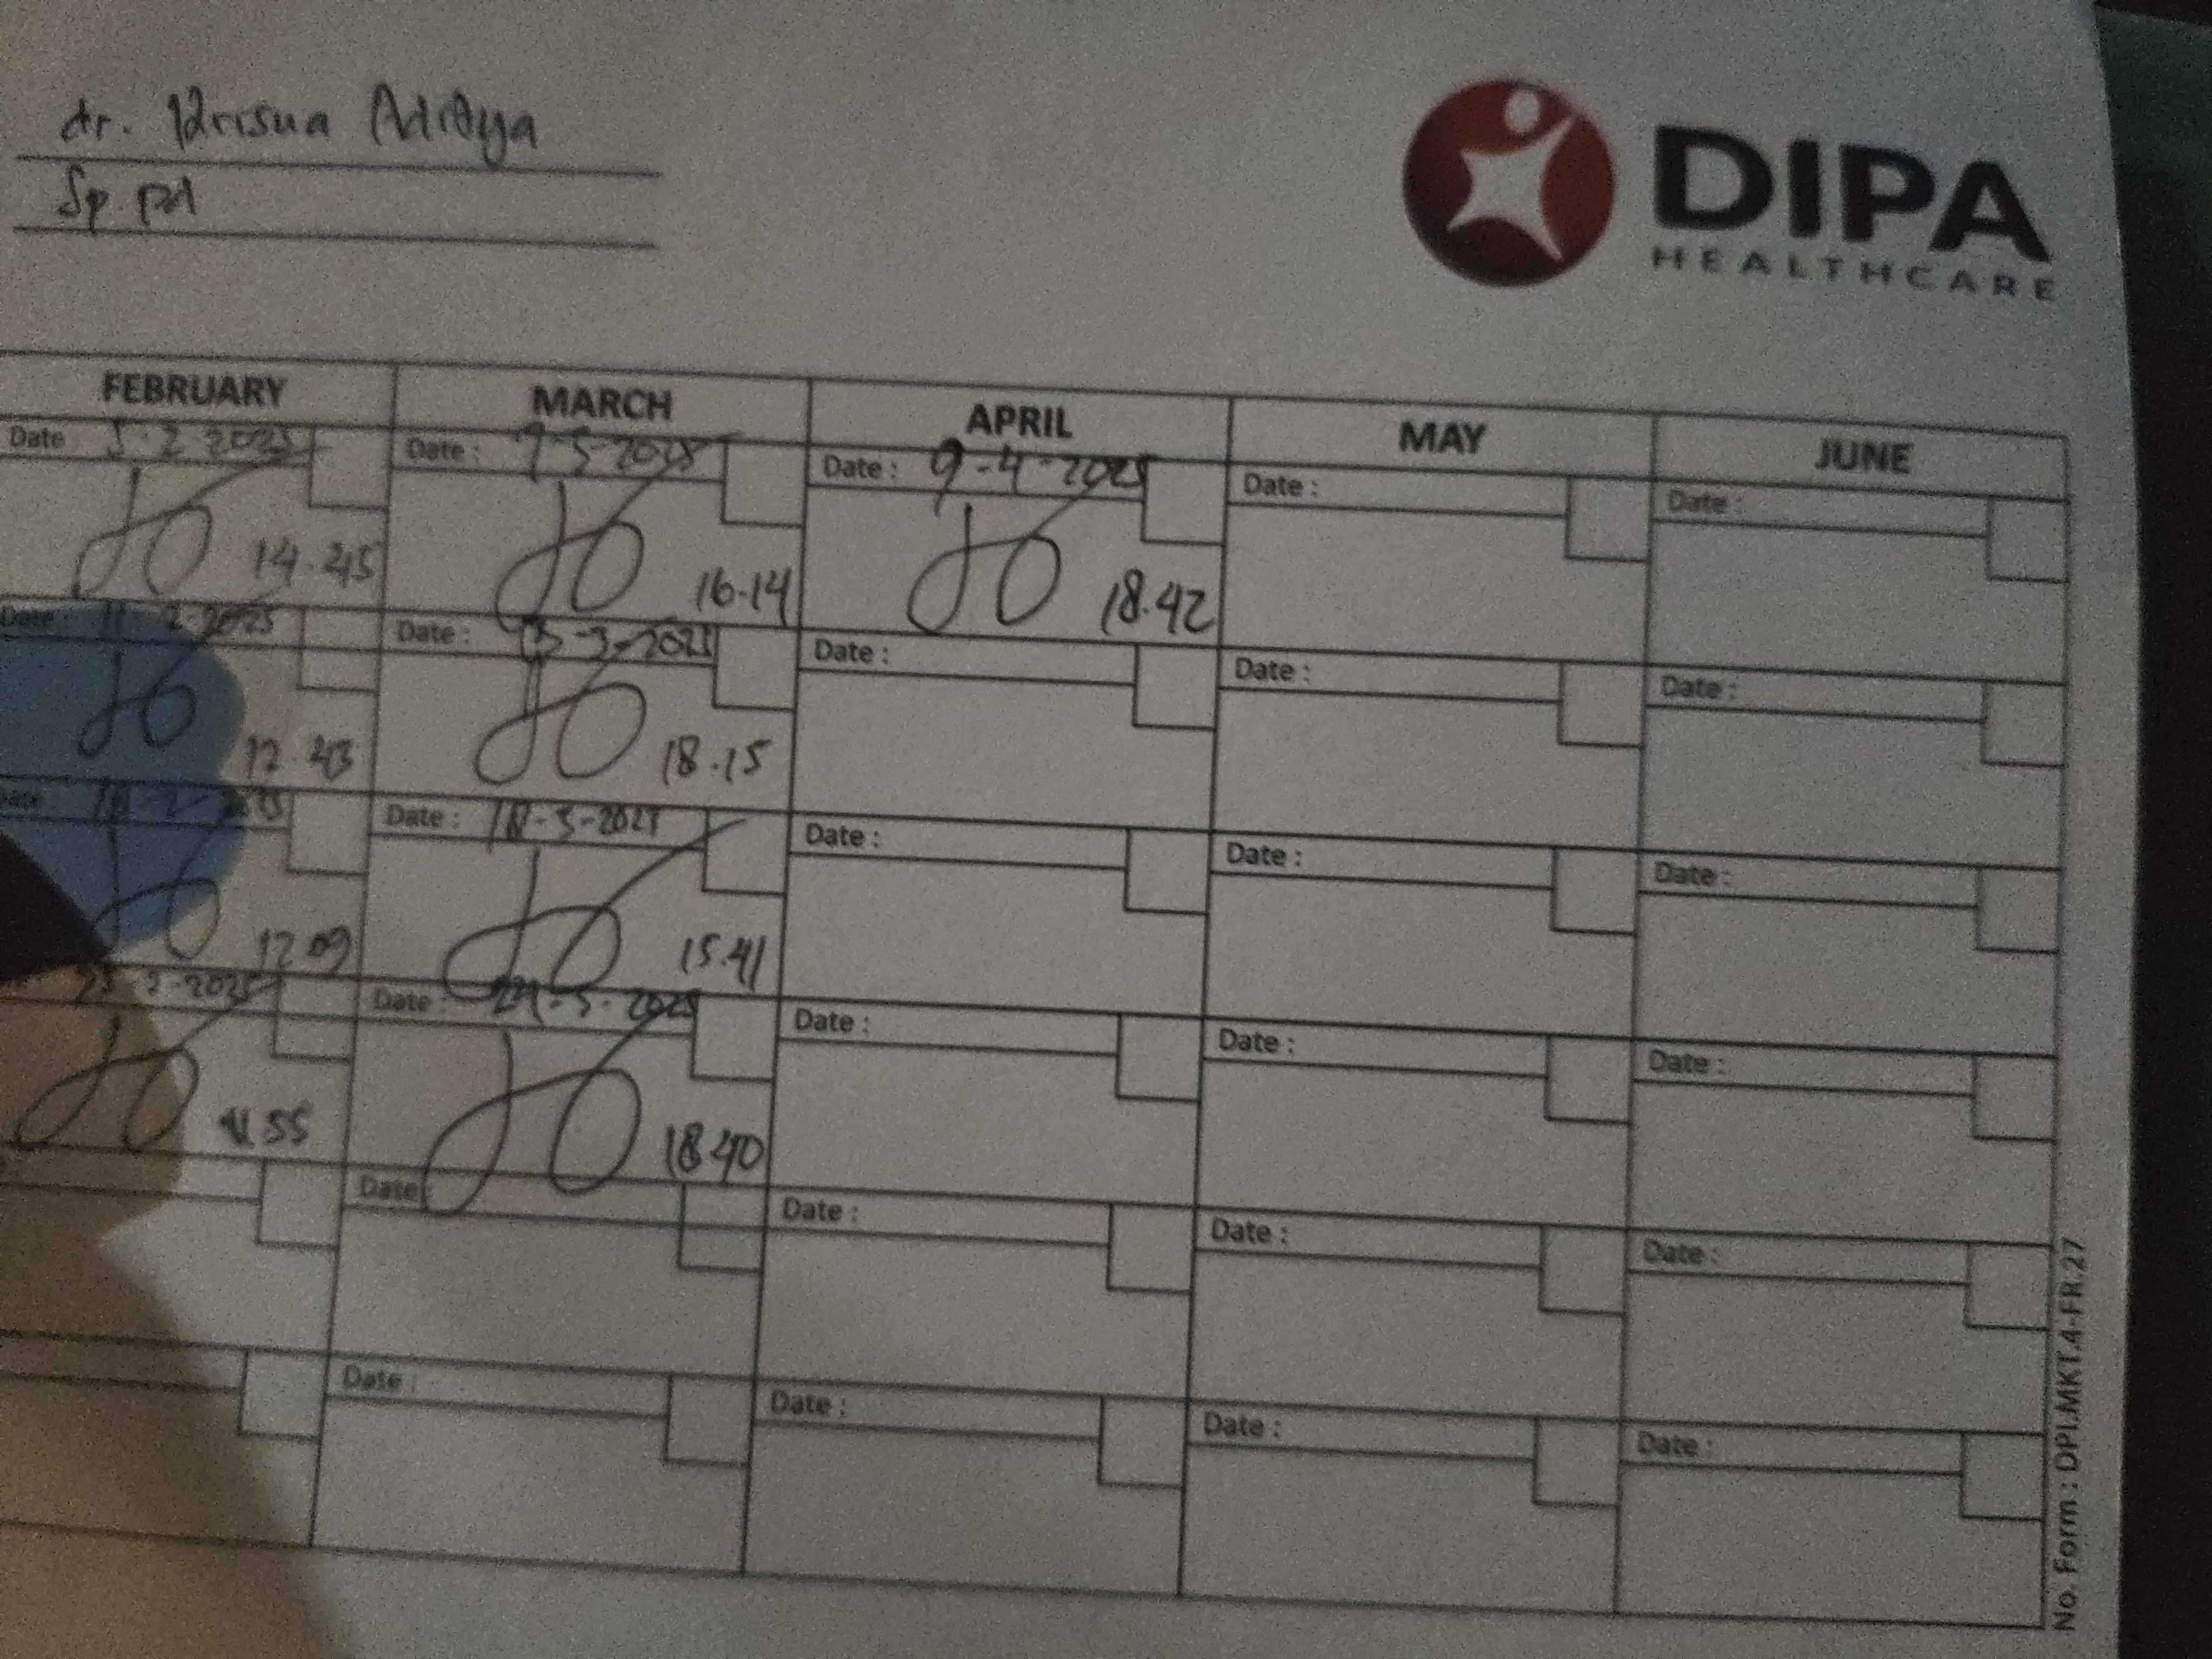 dr. Krisna Aditya
Sp. pd
DIPA
HEALTHCARE
FEBRUARY MARCH APRIL MAY JUNE
Date 5-2-2025 Date : 7-3-2025 Date : 9-4-2025 Date : Date :
14.45 16.14 18.42
Date : 11-2-2025 Date : 13-3-2025 Date : Date : Date :
12.43 18.15
Date : 18-3-2025 Date : Date : Date :
12.09 15.41
2-2025 Date : 24-3-2025 Date : Date : Date :
55 18.40
Date Date : Date : Date :
Date : Date : Date : Date :
No. Form : DPI.MKT.4-FR.27